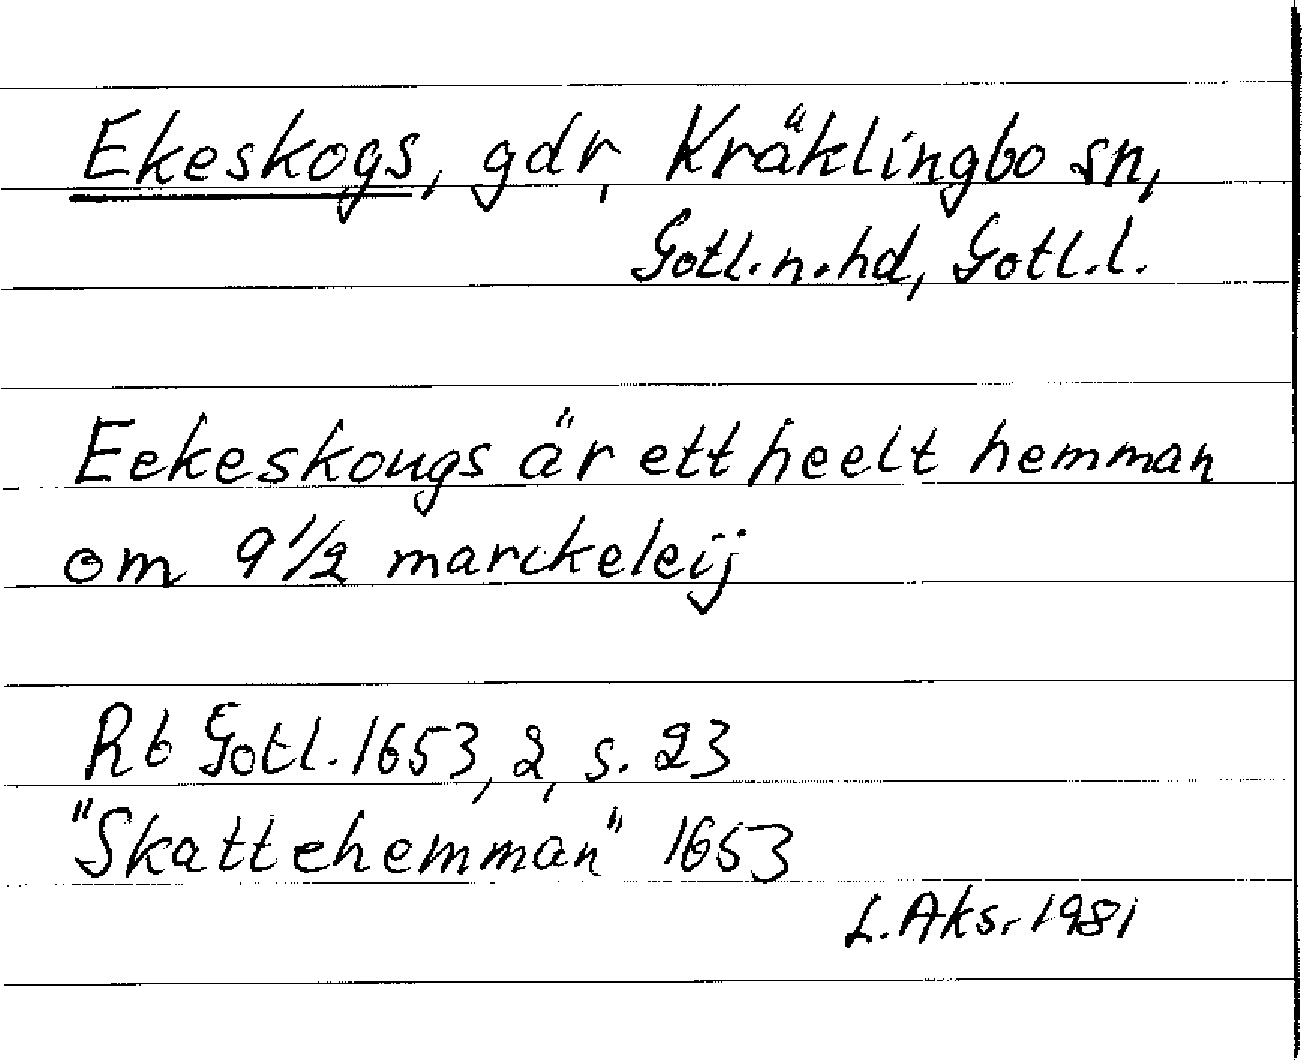 Ekeskogs, gdr, Kräklingbo sn,
Gotl.n.hd, Gotl.l.
Eekeskougs är ett heelt hemman
om 9 1/2 marckeleij
Rb Gotl. 1653, 2, s. 23
"Skattehemman" 1653
L. Aks. 1981